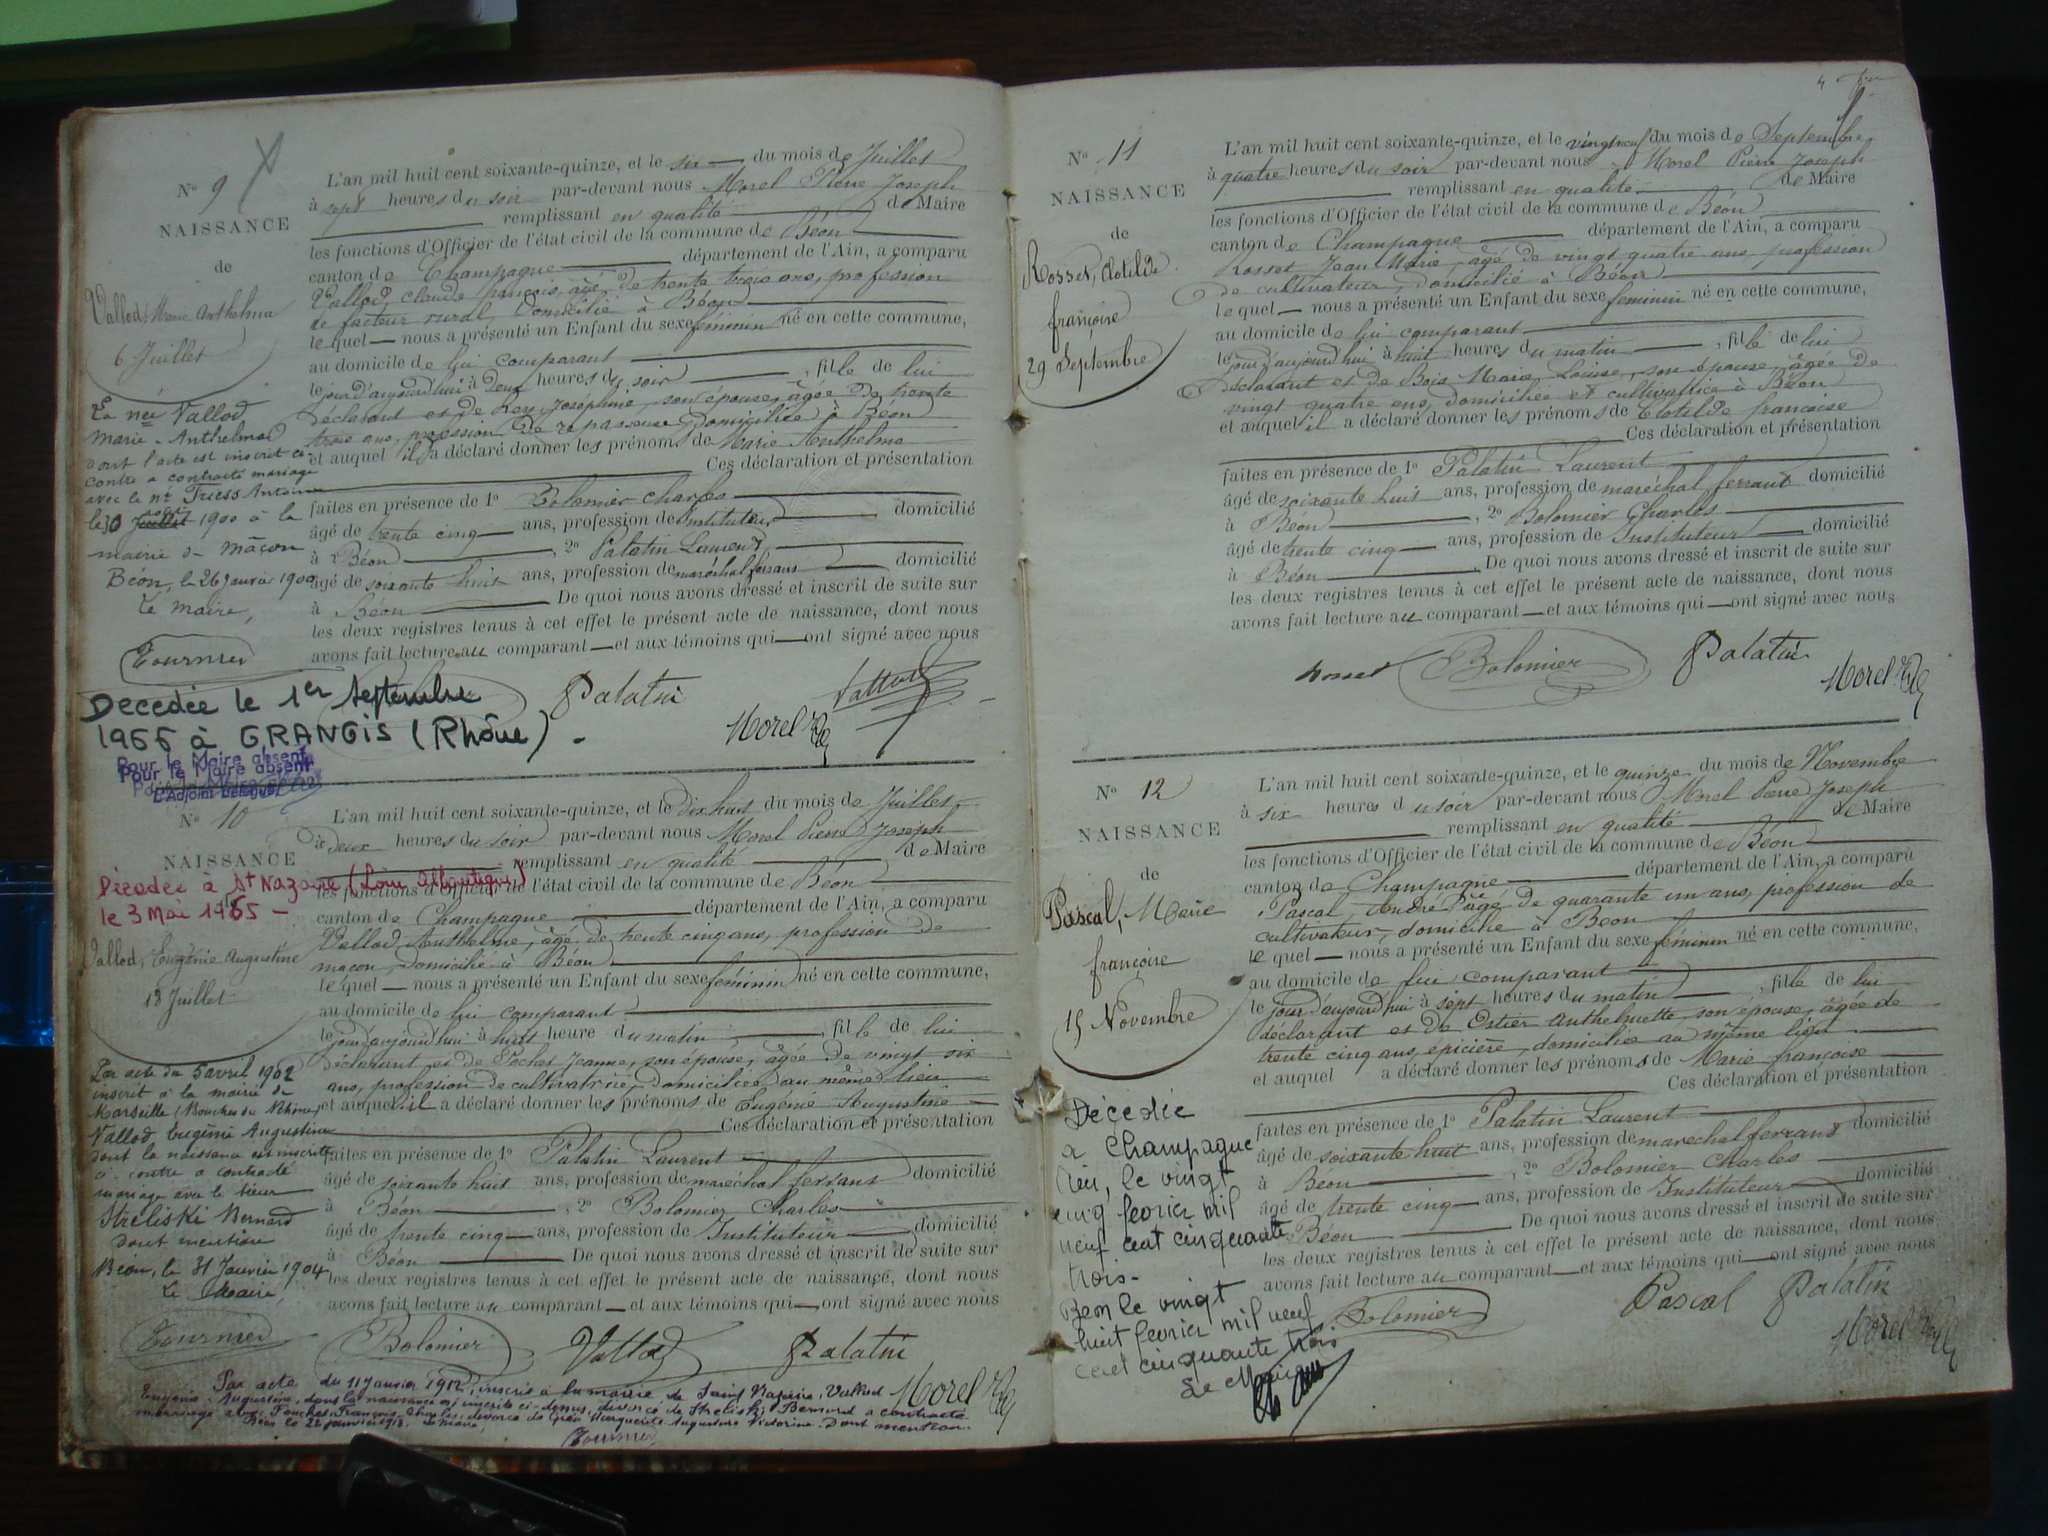 N° 9
NAISSANCE
de
Vallod, Marie Anthelma
6 Juillet
La née Vallod
Marie-Anthelma
dont l'acte est inscrit ci-
contre a contracté mariage
avec le nr Triess Antoine
le 30 1900 à la
mairie de Mâcon
Béon, le 26 Janvier 1900
Le Maire,
Tournier
Décédée le 1er septembre
1966 à GRANGIS (Rhône).
Pour le Maire absent
Pour le Maire absent
L'Adjoint délégué
L'an mil huit cent soixante-quinze, et le six du mois de Juillet
à sept heures du soir par-devant nous Morel Pierre Joseph
remplissant en qualité de Maire
les fonctions d'Officier de l'état civil de la commune de Béon
canton de Champagne département de l'Ain, a comparu
Vallod, claude françois, âgé de trente trois ans, profession
de facteur rural, domicilié à Béon
lequel nous a présenté un Enfant du sexe féminin né en cette commune,
au domicile de lui comparant
le jour d'aujourd'hui à deux heures du soir , fille de lui
déclarant et de Rey Joséphine, son épouse, âgée de trente
trois ans, profession de repasseuse, domiciliée à Béon
et auquel il a déclaré donner les prénoms de Marie Anthelma
Ces déclaration et présentation
faites en présence de 1° Bolomier Charles
âgé de trente cinq ans, profession de Instituteur domicilié
à Béon , 2° Palatin Laurent
âgé de soixante huit ans, profession de maréchal ferrant domicilié
à Béon De quoi nous avons dressé et inscrit de suite sur
les deux registres tenus à cet effet le présent acte de naissance, dont nous
avons fait lecture au comparant et aux témoins qui ont signé avec nous
Palatin Vallod
Morel
N° 10
NAISSANCE
Décédée à St Nazaire (Loire Atlantique)
le 3 Mai 1965 -
Vallod, Eugénie Augustine
18 Juillet
Par acte du 5 avril 1902
inscrit à la mairie de
Marseille (Bouches du Rhône)
Vallod, Eugénie Augustine
dont la naissance est inscrite
ci-contre a contracté
mariage avec le sieur
Streliski Bernard
dont mention
Béon, le 31 Janvier 1904
Le Maire,
Tournier
L'an mil huit cent soixante-quinze, et le dix huit du mois de Juillet
à deux heures du soir par-devant nous Morel Pierre Joseph
remplissant en qualité de Maire
les fonctions d'Officier de l'état civil de la commune de Béon
canton de Champagne département de l'Ain, a comparu
Vallod, Anthelme, âgé de trente cinq ans, profession de
maçon, domicilié à Béon
lequel nous a présenté un Enfant du sexe féminin né en cette commune,
au domicile de lui comparant
le jour d'aujourd'hui à huit heure du matin , fille de lui
déclarant et de Pochet Jeanne, son épouse, âgée de vingt six
ans, profession de cultivatrice, domiciliée au même lieu
et auquel il a déclaré donner les prénoms de Eugénie Augustine
Ces déclaration et présentation
faites en présence de 1° Palatin Laurent
âgé de soixante huit ans, profession de maréchal ferrant domicilié
à Béon , 2° Bolomier Charles
âgé de trente cinq ans, profession de Instituteur domicilié
à Béon De quoi nous avons dressé et inscrit de suite sur
les deux registres tenus à cet effet le présent acte de naissance, dont nous
avons fait lecture au comparant et aux témoins qui ont signé avec nous
Bolomier Vallod Palatin
Morel
Par acte du 11 Janvier 1912, inscrit à la mairie de Saint Nazaire, Vallod
Eugénie Augustine, dont la naissance est inscrite ci-dessus, divorcé de Streliski Bernard a contracté
mariage avec Fouchet François Charles, divorcé de Marguerite Augustine Victorine. Dont mention.
Béon le 22 Janvier 1912. Le Maire,
Tournier
N° 11
NAISSANCE
de
Rosset, Clotilde
françoise
29 Septembre
L'an mil huit cent soixante-quinze, et le vingt neuf du mois de Septembre
à quatre heures du soir par-devant nous Morel Pierre Joseph
remplissant en qualité de Maire
les fonctions d'Officier de l'état civil de la commune de Béon
canton de Champagne département de l'Ain, a comparu
Rosset Jean Marie, âgé de vingt quatre ans, profession
de cultivateur, domicilié à Béon
lequel nous a présenté un Enfant du sexe feminin né en cette commune,
au domicile de lui comparant
le jour d'aujourd'hui à huit heures du matin , fille de lui
déclarant et de Bois Marie Louise, son épouse, âgée de
vingt quatre ans, domiciliée et cultivatrice à Béon
et auquel il a déclaré donner les prénoms de Clotilde françoise
Ces déclaration et présentation
faites en présence de 1° Palatin Laurent
âgé de soixante huit ans, profession de maréchal ferrant domicilié
à Béon , 2° Bolomier Charles
âgé de trente cinq ans, profession de Instituteur domicilié
à Béon De quoi nous avons dressé et inscrit de suite sur
les deux registres tenus à cet effet le présent acte de naissance, dont nous
avons fait lecture au comparant et aux témoins qui ont signé avec nous
Rosset Bolomier Palatin
Morel
N° 12
NAISSANCE
de
Pascal, Marie
françoise
15 Novembre
Décédée
à Champagne
Ain, le vingt
cinq fevrier mil
neuf cent cinquante
trois.
Béon le vingt
huit fevrier mil neuf
cent cinquante trois
Le Maire
L'an mil huit cent soixante-quinze, et le quinze du mois de Novembre
à six heures du soir par-devant nous Morel Pierre Joseph
remplissant en qualité de Maire
les fonctions d'Officier de l'état civil de la commune de Béon
canton de Champagne département de l'Ain, a comparu
Pascal, André, âgé de quarante un ans, profession de
cultivateur, domicilié à Béon
lequel nous a présenté un Enfant du sexe féminin né en cette commune,
au domicile de lui comparant
le jour d'aujourd'hui à sept heures du matin , fille de lui
déclarant et de Ostier Anthelmette, son épouse, âgée de
trente cinq ans, epicière, domiciliée au même lieu
et auquel a déclaré donner les prénoms de Marie françoise
Ces déclaration et présentation
faites en présence de 1° Palatin Laurent
âgé de soixante huit ans, profession de maréchal ferrant domicilié
à Béon , 2° Bolomier Charles
âgé de trente cinq ans, profession de Instituteur domicilié
à Béon De quoi nous avons dressé et inscrit de suite sur
les deux registres tenus à cet effet le présent acte de naissance, dont nous
avons fait lecture au comparant et aux témoins qui ont signé avec nous
Bolomier Pascal Palatin
Morel